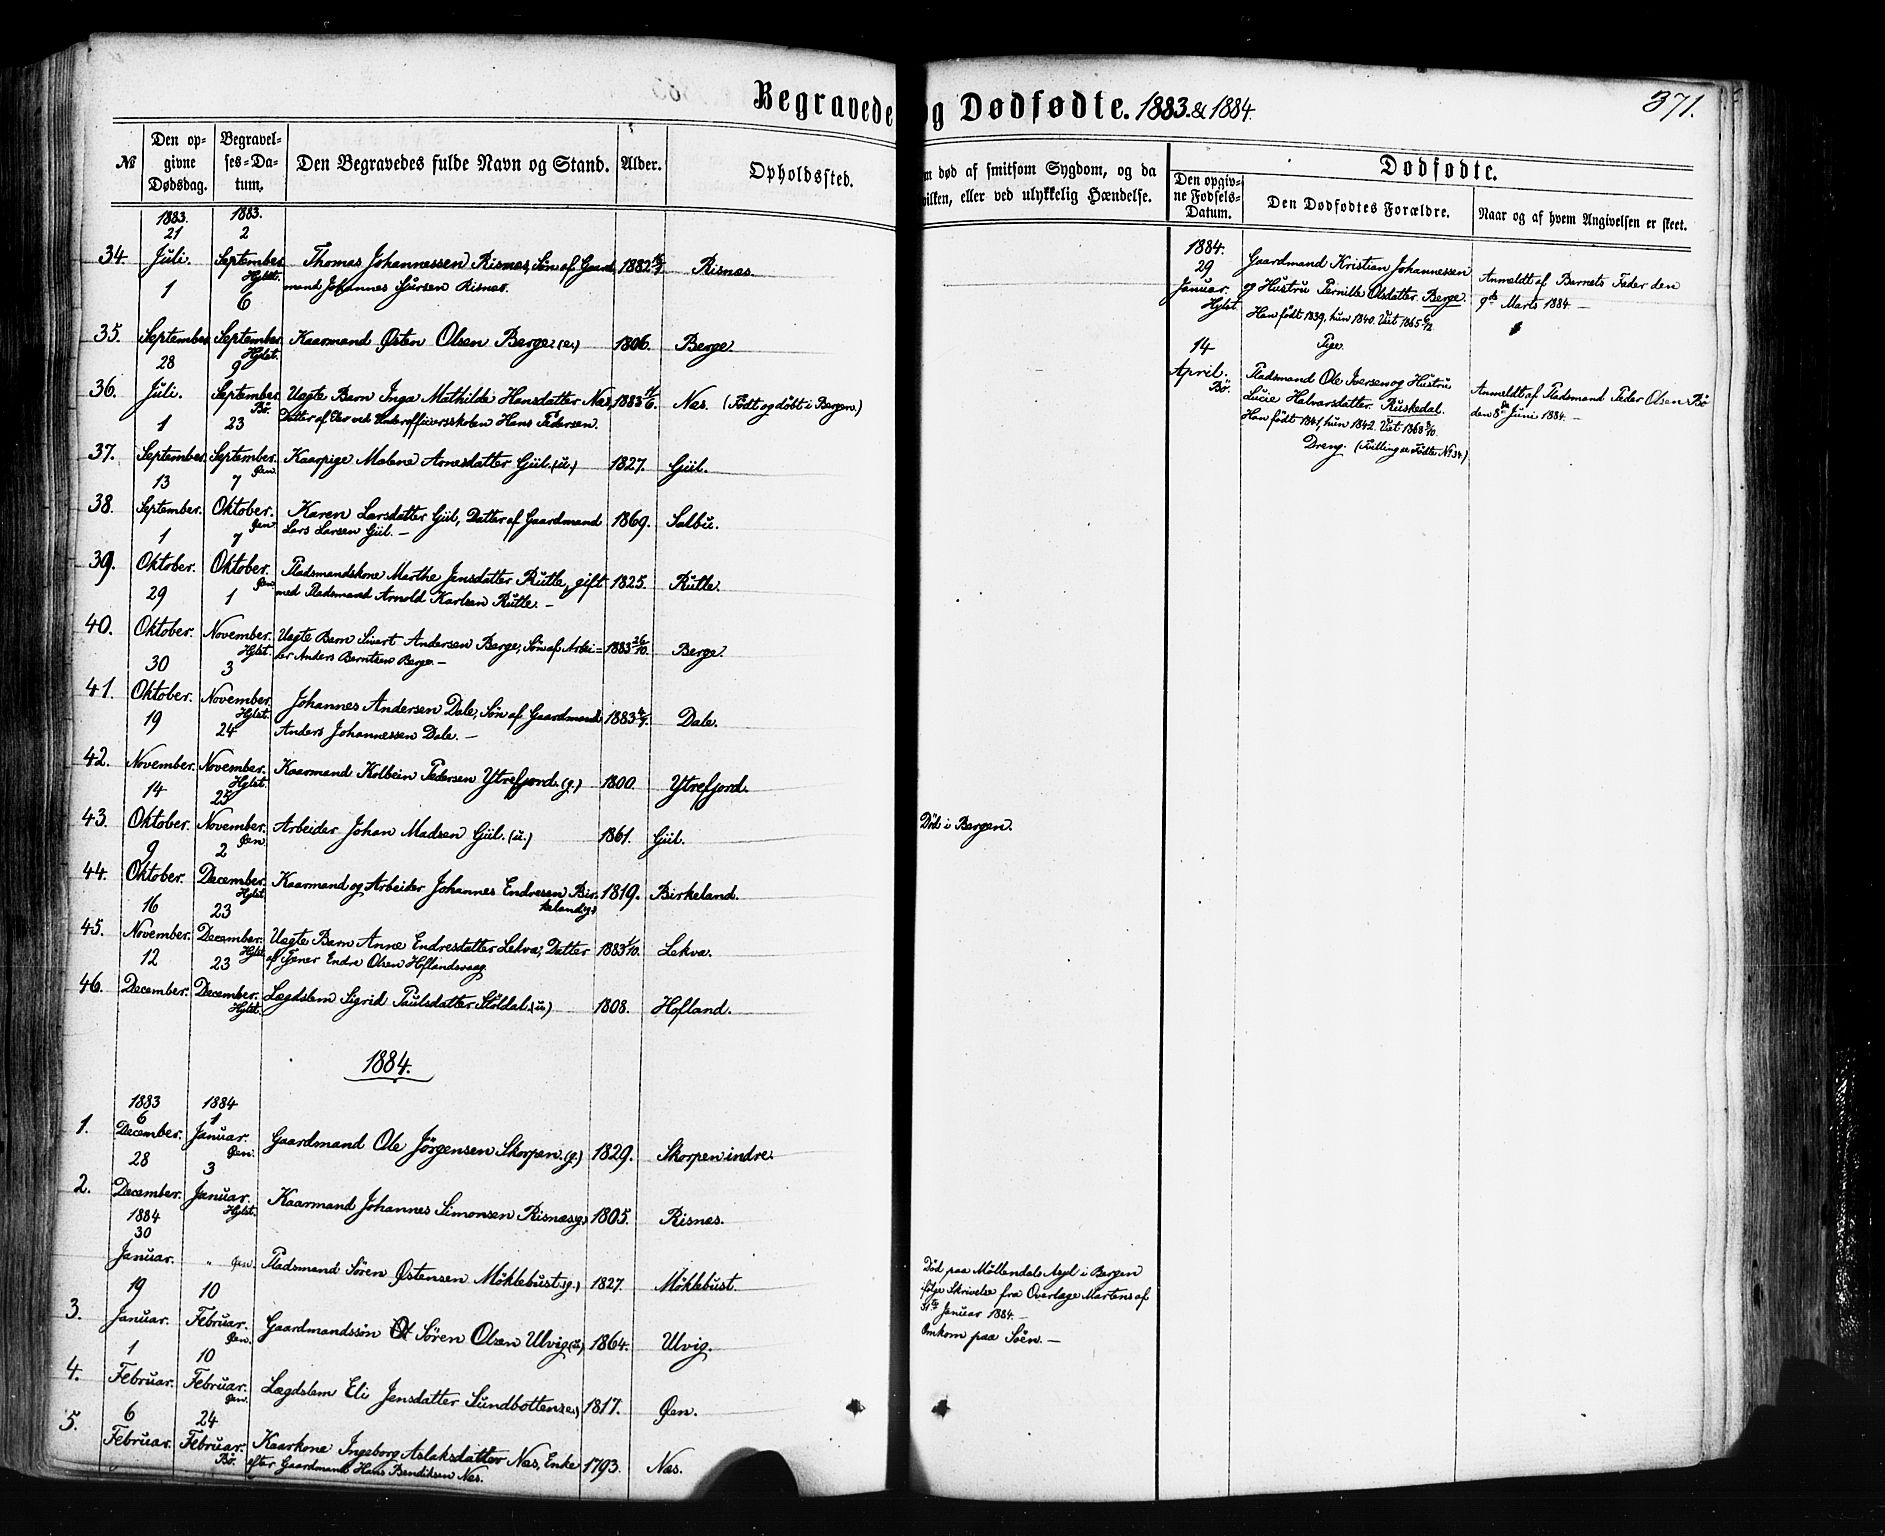 Begravede og Dødfødte. 1883 & 1884. 371.
№ | Den opgivne Dødsdag. | Begravelses=Datum. | Den Begravedes fulde Navn og Stand. | Alder. | Opholdssted. | død af smitsom Sygdom, og da hvilken, eller ved ulykkelig Hændelse.
1883. 1883.
34. 21 Juli. 2 September Hylst. Thomas Johannessen Risnes, Søn af Gaard 1882 Risnes.
mand Johannes Sjursen Risnes.
35. 1 September 6 September Hylst. Kaarmand Østen Olsen Berge. (e.) 1806. Berge.
36. 28 Juli. 9 September Bø. Uægte Barn Inga Mathilde Hansdatter Næs, 1883 Næs. (Født og døbt i Bergen.)
Datter af Elev ved Underofficersskolen Hans Pedersen.
37. 1 September. 23 September. Øen Kaarpige Malene Arnesdatter Giil. (u.) 1827. Giil.
38. 13 September. 7 Oktober. Øen Karen Larsdatter Giil, Datter af Gaardmand 1869. Salbu.
Lars Larsen Giil. —
39. 1 Oktober. 7 Oktober. Øen Pladsmandskone Marthe Jensdatter Rutle, gift 1825. Rutle.
med Pladsmand Arnold Karlsen Rutle. —
40. 29 Oktober. 1 November. Hylst. Uægte Barn Sivert Andersen Berge, Søn af Arbei= 1883 26/10. Berge.
der Anders Berntsen Berge. —
41. 30 Oktober. 3 November. Hylst. Johannes Andersen Dale, Søn af Gaardmand 1883 Dale.
Anders Johannessen Dale. —
42. 19 November. 24 November. Hylst. Kaarmand Kolbein Pedersen Ytrefjord. (g.) 1800. Ytrefjord.
43. 14 Oktober. 25 November. Øen Arbeider Johan Madsen Giil. (u.) 1861. Giil. Død i Bergen.
44. 9 Oktober. 2 December. Hylst. Kaarmand og Arbeider Johannes Endresen Bir= 1819. Birkeland.
keland (g.)
45. 16 November. 23 December. Hylst. Uægte Barn Anne Endresdatter Lekva, Datter 1883 1/10. Lekva.
af Tjener Endre Olsen Hoflandsvaag.
46. 12 December. 23 December. Hylst. Lægdslem Sigrid Paulsdatter Støldal. (u.) 1808. Hofland.
1884.
1883 1884
1. 6 December. 1 Januar. Øen. Gaardmand Ole Jørgensen Skorpen. (g.) 1829. Skorpen indre.
2. 28 December. 3 Januar. Hylst. Kaarmand Johannes Simonsen Risnes (g.) 1805. Risnes.
1884
30 Januar. „ Øen Pladsmand Søren Østensen Møklebust (g.) 1827. Møklebust. Død paa Møllendals Asyl i Bergen
ifølge Skrivelse fra Overlæge Martens af
31te Januar 1884. —
3. 19 Januar. 10 Februar. Øen. Gaardmandssøn Søren Olsen Ulvig (u.) 1864. Ulvig. Omkom paa Søen. —
4. 1 Februar. 10 Februar. Øen. Lægdslem Eli Jensdatter Sundbotten (e.) 1817. Øen.
5. 6 Februar. 24 Februar. Bø. Kaarkone Ingeborg Aslaksdatter Næs, Enke 1793. Næs.
efter Gaardmand Hans Bendiksen Næs.
Dødfødte.
Den opgivne Fødsels-Datum. | Den Dødfødtes Forældre. | Naar og af hvem Angivelsen er skeet.
1884.
29 Januar. Hylst. Gaardmand Kristian Johannessen
og Hustru Pernille Olsdatter Berge.
Han født 1839, hun 1840. Viet 1865
Pige.
Anmeldt af Barnets Fader den
9de Marts 1884. —
14 April. Bø. Pladsmand Ole Iversen og Hustru
Lucie Halvarsdatter. Ruskedal.
Han født 1841, hun 1842. Viet 1868
Dreng. (Tvilling se Fødte № 34.)
Anmeldt af Pladsmand Peder Olsen Bø
den 8de Juni 1884. —